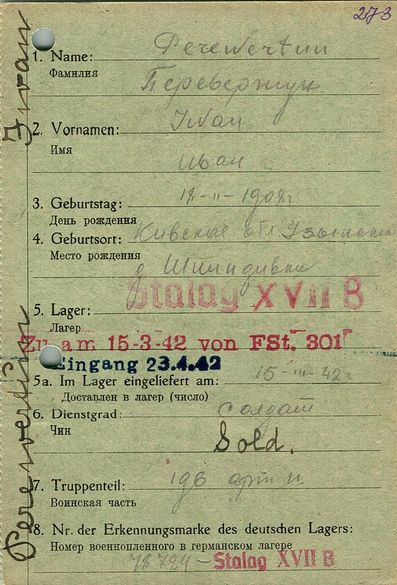 273
1. Name: Perewertun
Фамилия
Перевертун
2. Vornamen: Iwan
Имя
Иван
3. Geburtstag: 18-II-1908г
День рождения
4. Geburtsort: Киевская обл.
Место рождения
Stalag XVII B
5. Lager:
Лагер
Zu am 15-3-42 von FSt. 301
Eingang 23.4.42
5a. Im Lager eingeliefert am: 15-III-42г.
Доставлен в лагер (число)
6. Dienstgrad: солдат
Чин
Sold.
7. Truppenteil: 196 арт п
Воинская часть
8. Nr. der Erkennungsmarke des deutschen Lagers:
Номер военнопленного в германском лагере
Stalag XVII B
Perewertun Iwan